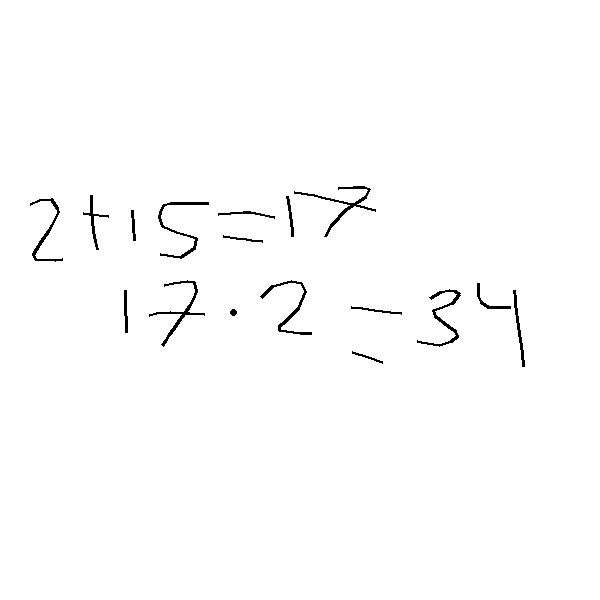 2+15=17
17·2=34